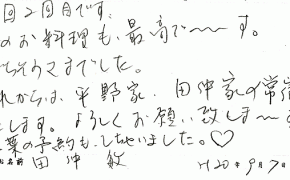 回2回目です。
のお料理も、最高で〜〜す。
ちそうさまでした。
れからは、平野家、田沖家の常宿
にします。よろしくお願い致しま〜す
葉の予約も、しちゃいました。♡
お名前 田沖 H20年9月7